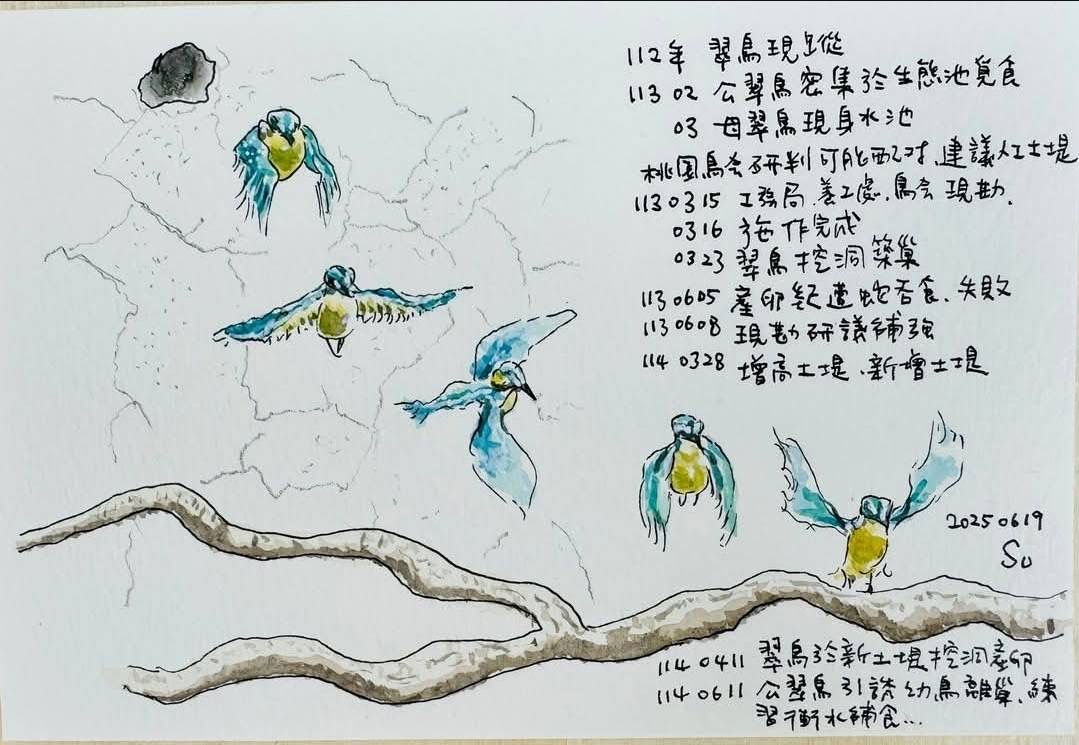 112年 翠鳥現蹤
113 02 公翠鳥密集於生態池覓食
03 母翠鳥現身水池
桃園鳥会研判可能配対、建議人工土堤
113 0315 工務局.養工處.鳥会 現勘.
0316 施作完成
0323 翠鳥挖洞築巢
113 0605 產卵後遭蛇吞食、失敗
113 0608 現勘研議補強
114 0328 增高土堤、新增土堤
20250619
Su
114 0411 翠鳥於新土堤挖洞產卵
114 0611 公翠鳥引誘幼鳥離巢、練
習衝水補食...